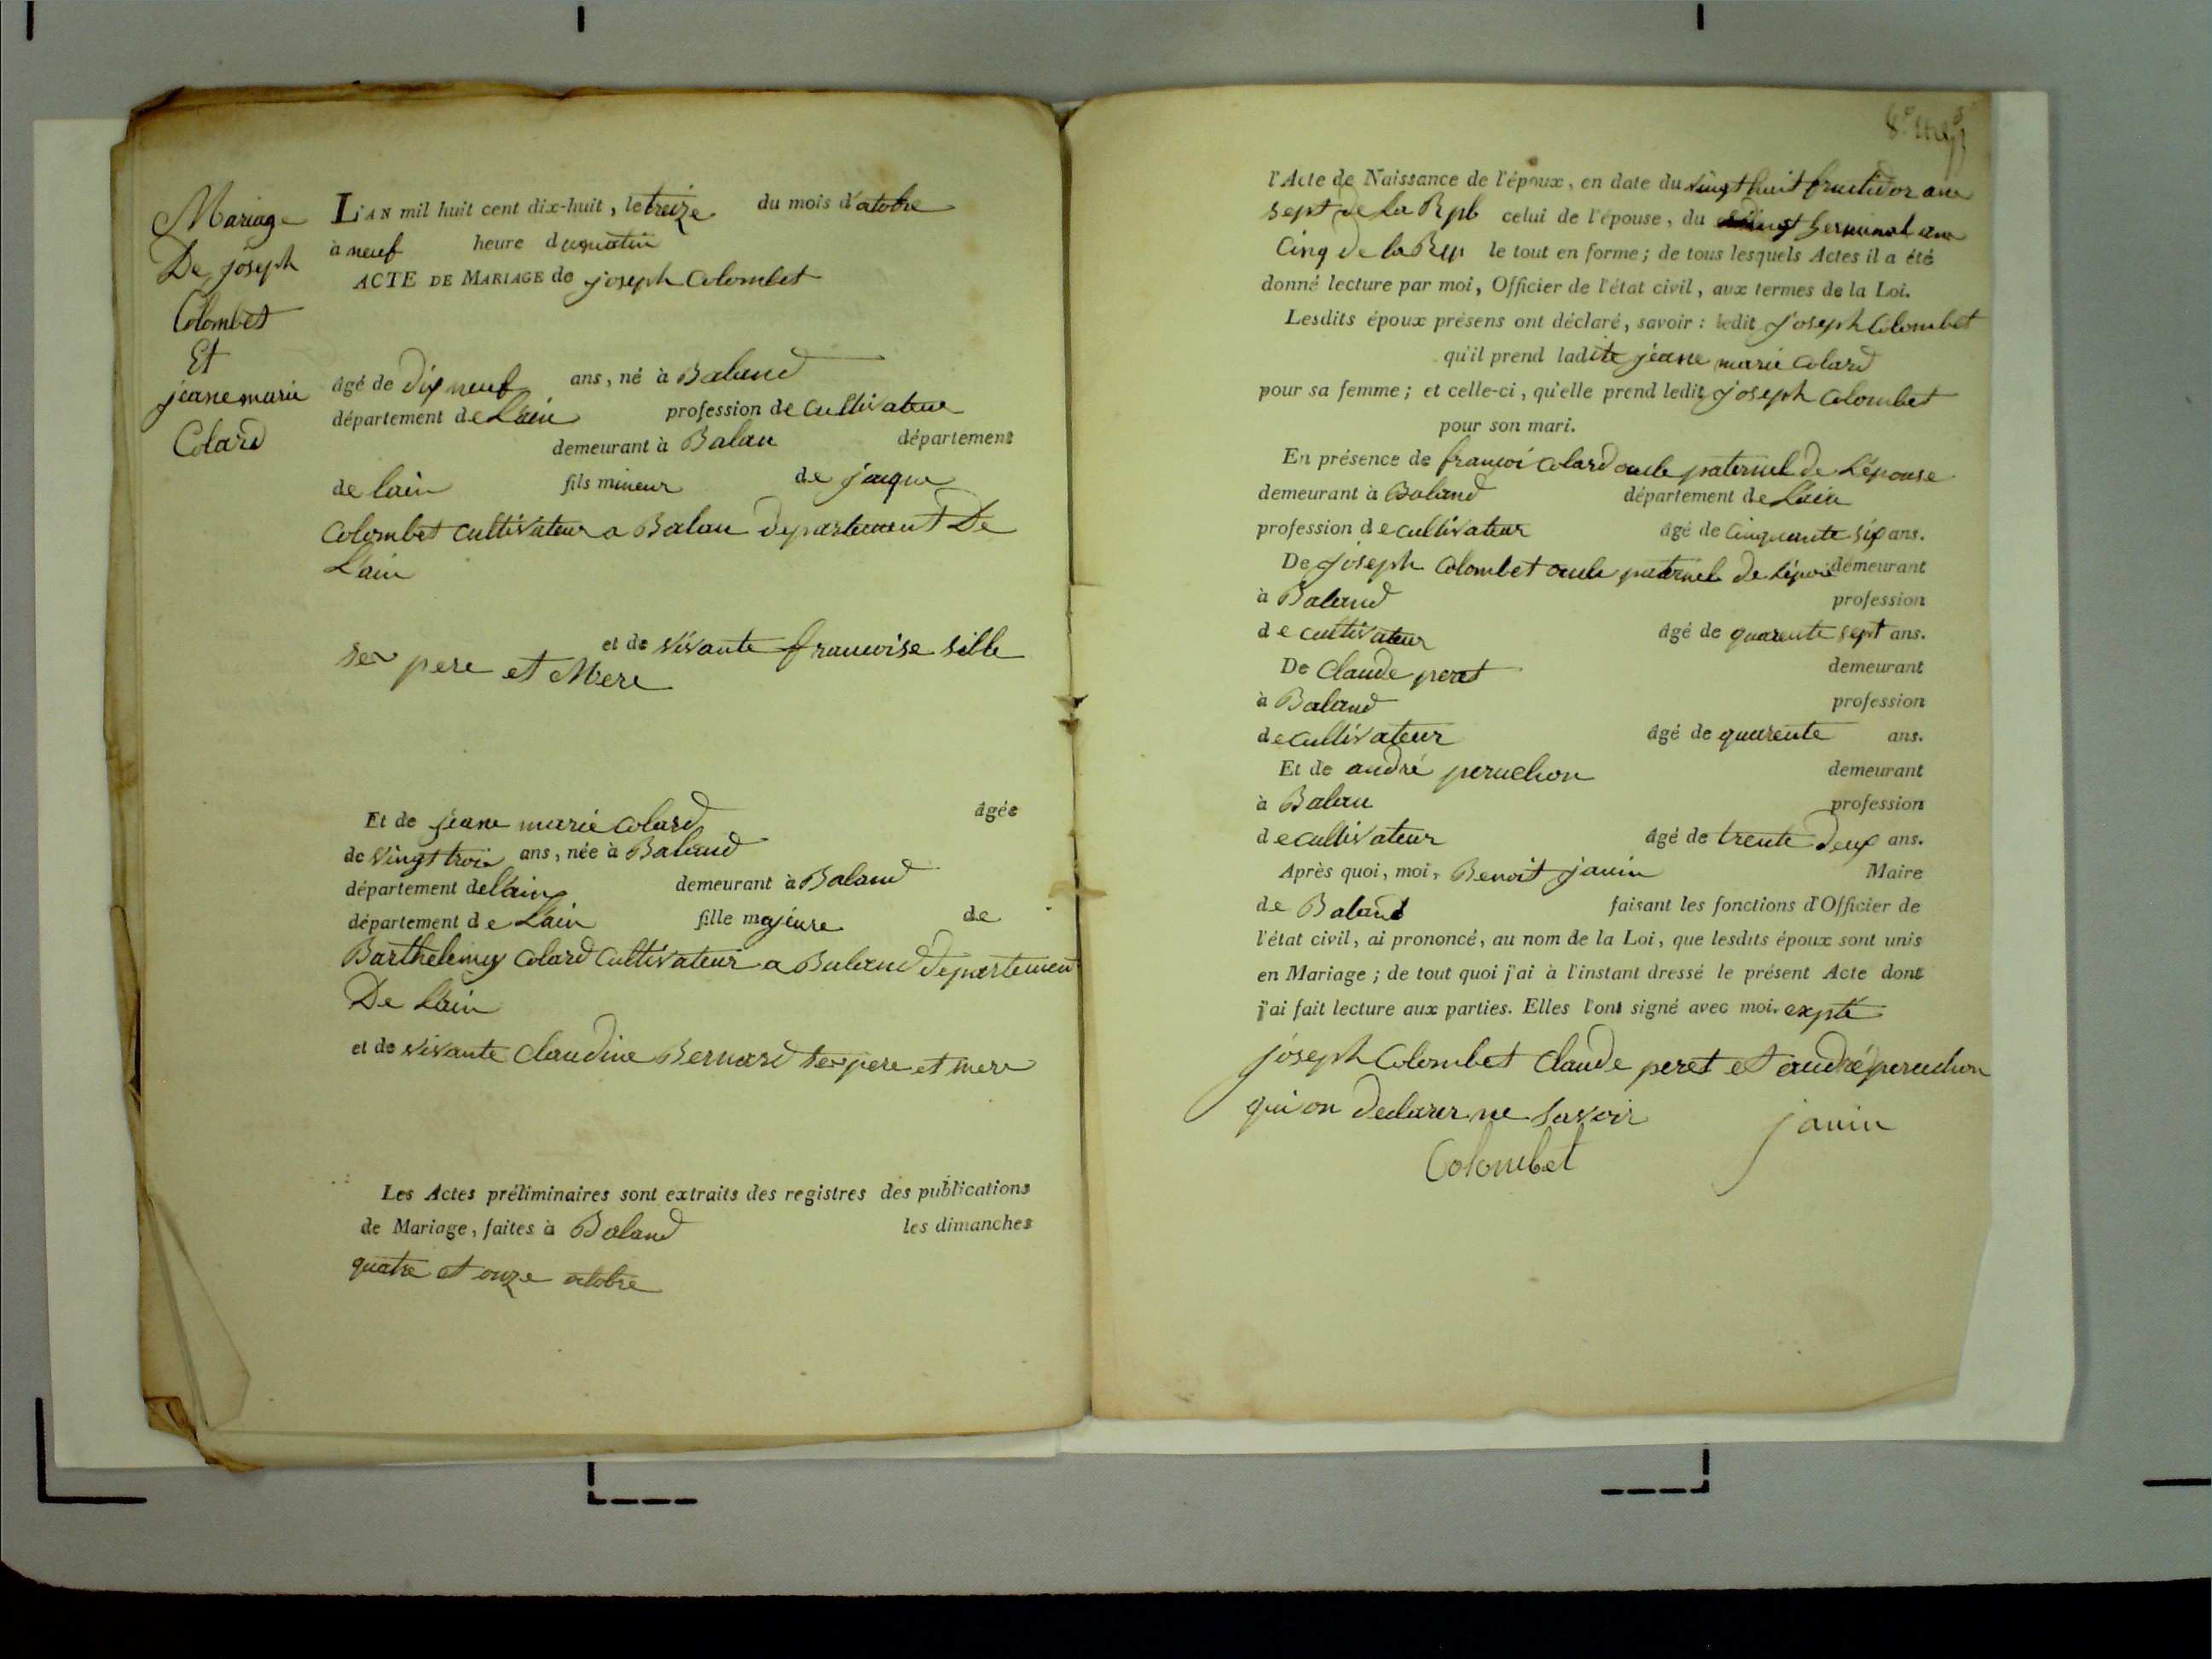 Mariage
De joseph
Colombet
Et
jeane marie
Colard
L'AN mil huit cent dix-huit, le treize du mois d'octobre
à neuf heure du matin
ACTE DE MARIAGE de joseph Colombet
âgé de dix neuf ans, né à Baland
département de L'ain profession de cultivateur
demeurant à Balan département
de lain fils mineur de jaque
Colombet cultivateur a Balan departement De
L'ain
et de vivante francoise sille
ses pere et Mere
Et de jeane marie Colard âgée
de vingt trois ans, née à Baland
département de l'ain demeurant à Baland
département de L'ain fille majeure de
Barthelemy Colard Cultivateur a Baland departement
De L'ain
et de vivante Claudine Bernard ses pere et mere
Les Actes préliminaires sont extraits des registres des publications
de Mariage, faites à Baland les dimanches
quatre et onze octobre
l'Acte de Naissance de l'époux, en date du vingt huit fructidor ane
sept de la Rpb celui de l'épouse, du vingt Germinal ane
Cinq de la Rep le tout en forme; de tous lesquels Actes il a été
donné lecture par moi, Officier de l'état civil, aux termes de la Loi.
Lesdits époux présens ont déclaré, savoir : ledit joseph Colombet
qu'il prend ladite jeane marie Colard
pour sa femme; et celle-ci, qu'elle prend ledit joseph Colombet
pour son mari.
En présence de francoi Colard oncle paternel de L'épouse
demeurant à Baland département de L'ain
profession de cultivateur âgé de Cinquante six ans.
De joseph Colombet oncle paternel de L'épou demeurant
à Baland profession
de cultivateur âgé de quarente sept ans.
De Claude peret demeurant
à Baland profession
de cultivateur âgé de quarente ans.
Et de andré peruchon demeurant
à Balan profession
de cultivateur âgé de trente deux ans.
Après quoi, moi, Benoit janin Maire
de Baland faisant les fonctions d'Officier de
l'état civil, ai prononcé, au nom de la Loi, que lesdits époux sont unis
en Mariage; de tout quoi j'ai à l'instant dressé le présent Acte dont
j'ai fait lecture aux parties. Elles l'ont signé avec moi. expté
joseph Colombet Claude peret et andré peruchon
qui on declarer ne savoir janin
Colombet